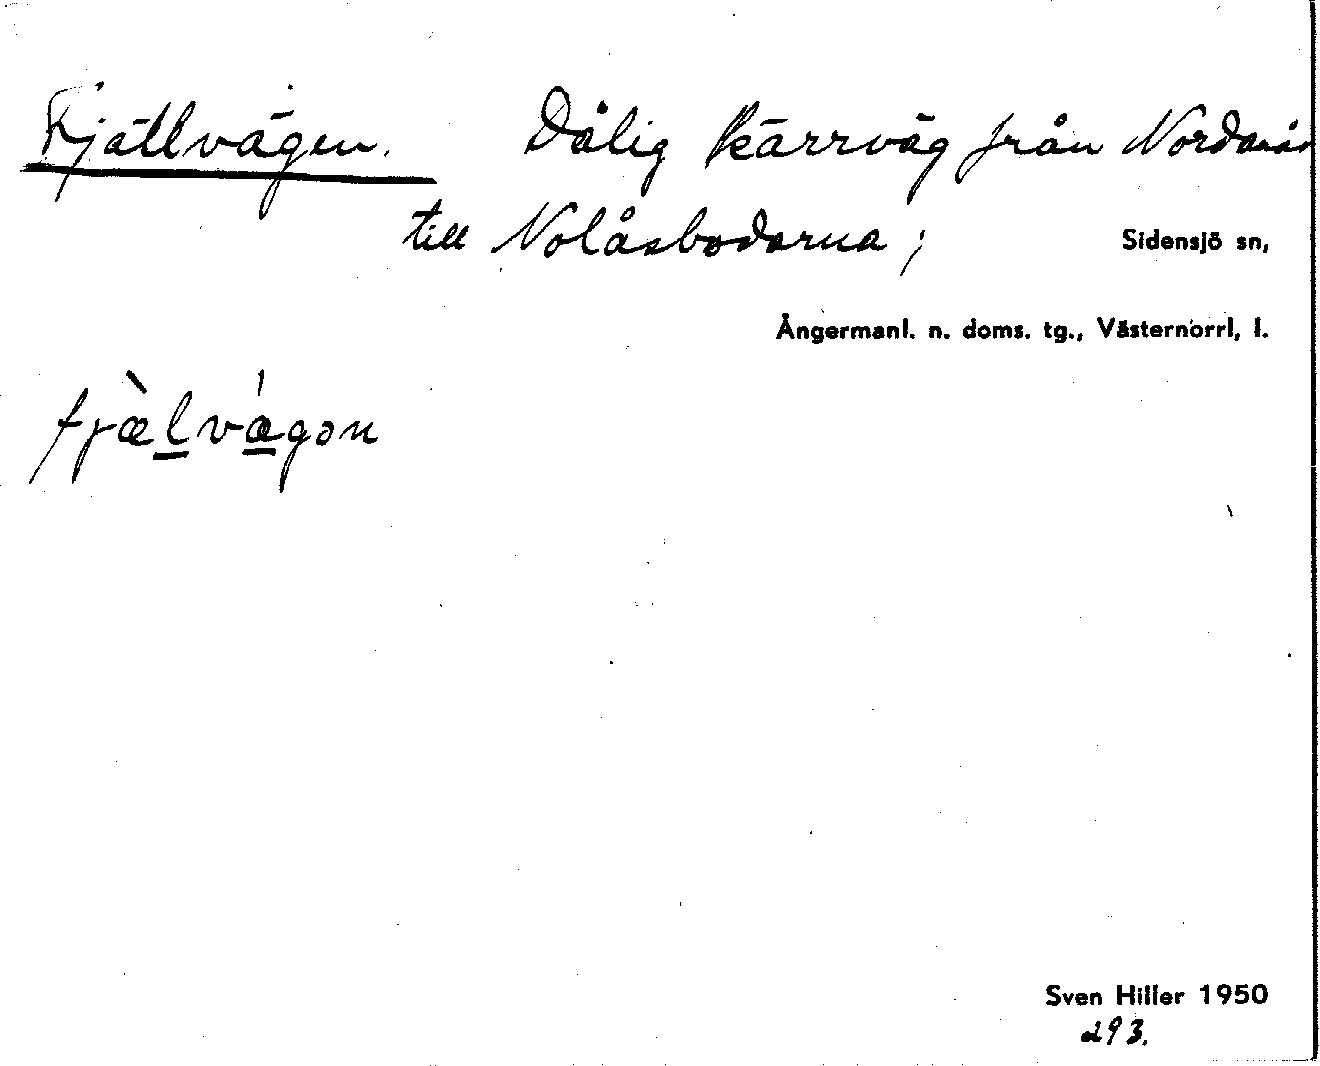 Fjällvägen. Dålig kärrväg från Nordanås
till Nolåsbodarna; Sidensjö sn,
Ångermanl. n. doms. tg., Västernorrl, l.
fjæ̀lvǽgən
Sven Hiller 1950
293.